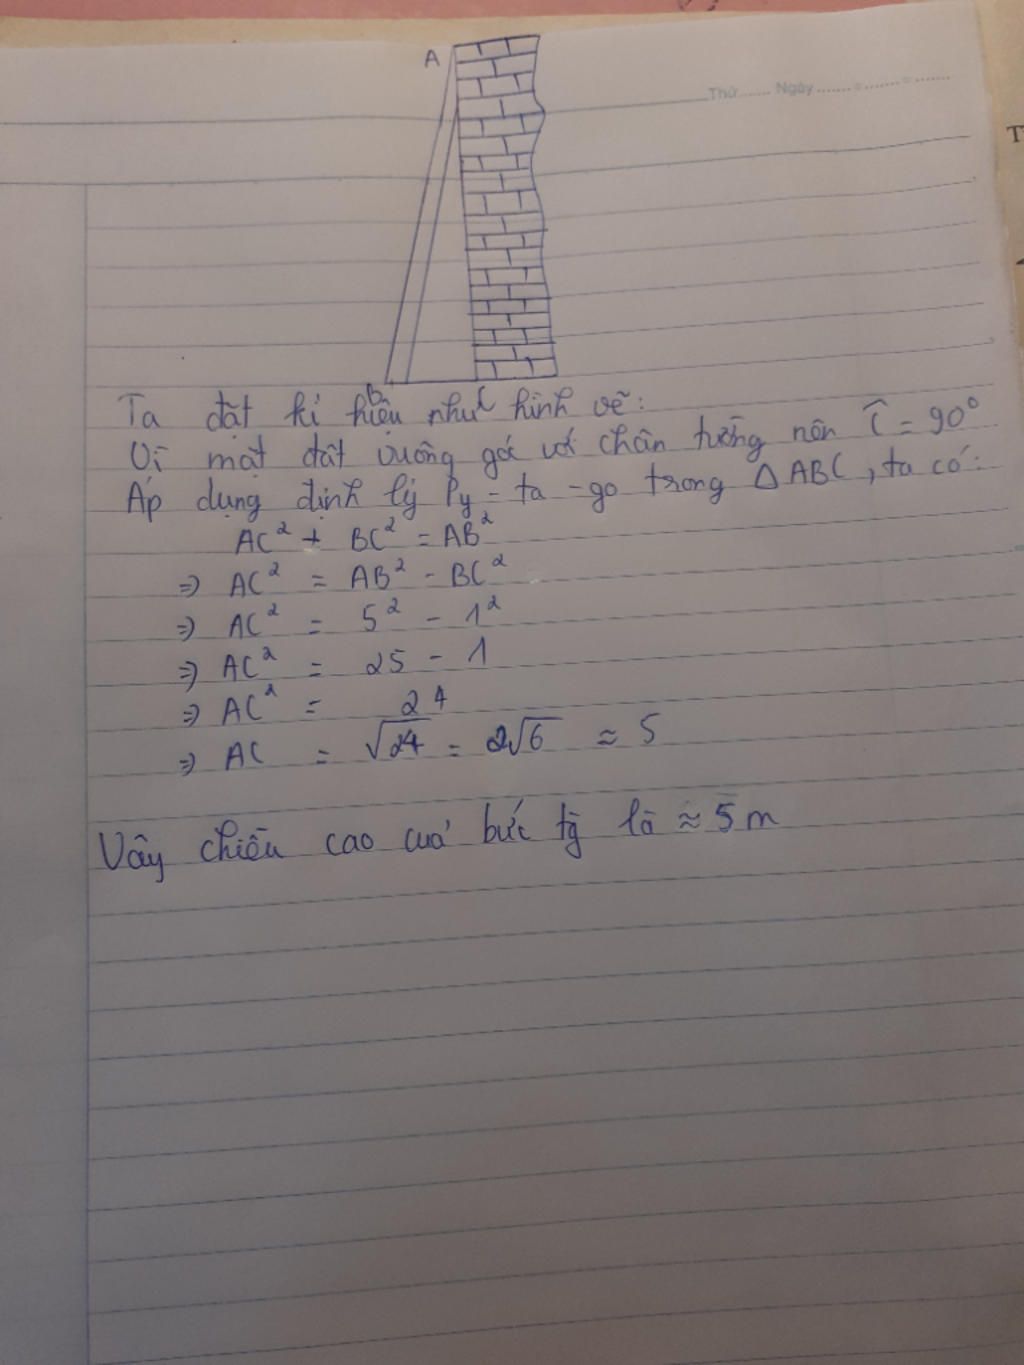 A
Thứ...... Ngày.......=.......=.......
T
B
Ta đặt kí hiệu như hình vẽ:
Vì mặt đất vuông góc với chân tường nên Ĉ = 90°
Áp dụng định lý Py-ta-go trong △ABC, ta có:
AC² + BC² = AB²
⇒ AC² = AB² - BC²
⇒ AC² = 5² - 1²
⇒ AC² = 25 - 1
⇒ AC² = 24
⇒ AC = √24 = 2√6 ≈ 5
Vậy chiều cao của bức tg̀ là ≈ 5m